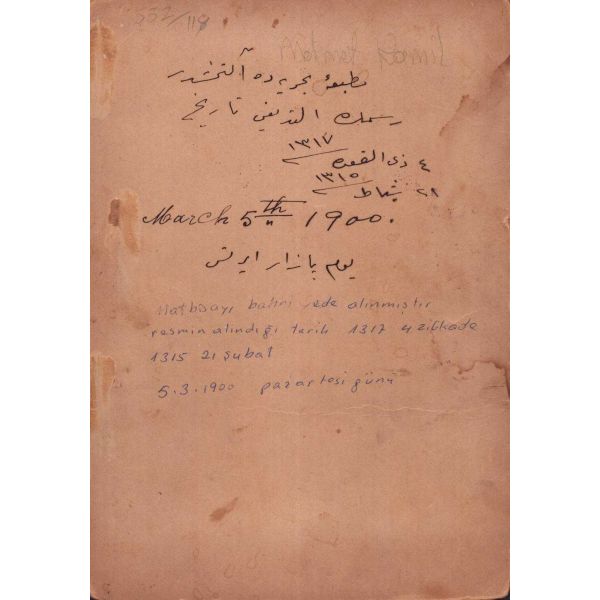 552/118
مطبعهٔ بحریه ده آلنمشدر
رسمك آلندیغی تاریخ
١٣١٧
٤ ذی القعده
١٣١٥
٢١ شباط
March 5th 1900.
یوم پازار ایرتسی
Matbaayı bahriyede alınmıştır
resmin alındığı tarih 1317 4 zilkade
1315 21 şubat
5.3.1900 pazartesi günü